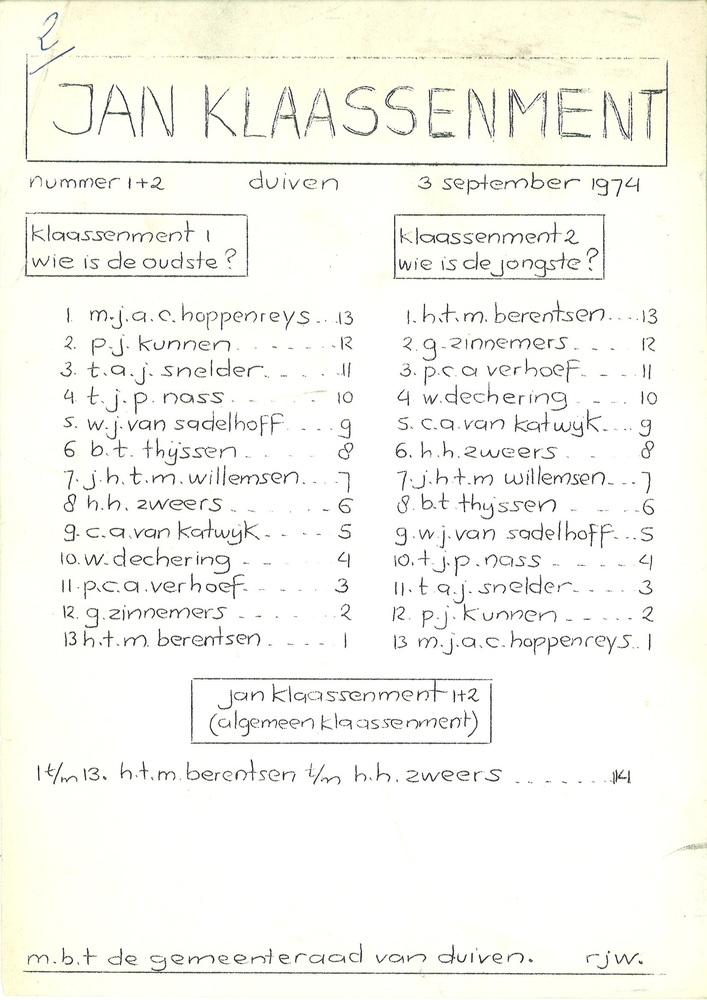 2
JAN KLAASSENMENT
nummer 1+2 duiven 3 september 1974
klaassenment 1
wie is de oudste?
1. m.j.a.c. hoppenreys...13
2. p.j. kunnen. - - - - - -12
3. t.a.j. snelder. - - - -11
4. t.j.p. nass. - - - 10
5. w.j. van sadelhoff. - - - 9
6 b.t. thijssen. - - - - 8
7. j.h.t.m. willemsen. - - 7
8 h.h. zweers. - - - - - 6
9. c.a. van katwijk. - - - - 5
10. w. dechering - - - - 4
11. p.c.a. verhoef. - - - - 3
12. g. zinnemers - - - - - 2
13 h.t.m. berentsen. - - - - 1
klaassenment 2
wie is de jongste?
1. h.t.m. berentsen. - - -13
2. g. zinnemers. - - - 12
3. p.c.a verhoef. - - - 11
4 w. dechering - - - - 10
5. c.a. van katwyk. - - 9
6. h.h. zweers - - - - 8
7. j.h.t.m willemsen. - - 7
8. b.t. thyssen - - - - 6
9. w.j. van sadelhoff. - - 5
10. t.j.p. nass - - - - 4
11. t.a.j. snelder. - - - 3
12. p.j. kunnen - - - - - 2
13 m.j.a.c. hoppenreys.. 1
jan klaassenment 1+2
(algemeen klaassenment)
1 t/m 13. h.t.m. berentsen t/m h.h. zweers - - - - - - -14
m.b.t de gemeenteraad van duiven. rjw.